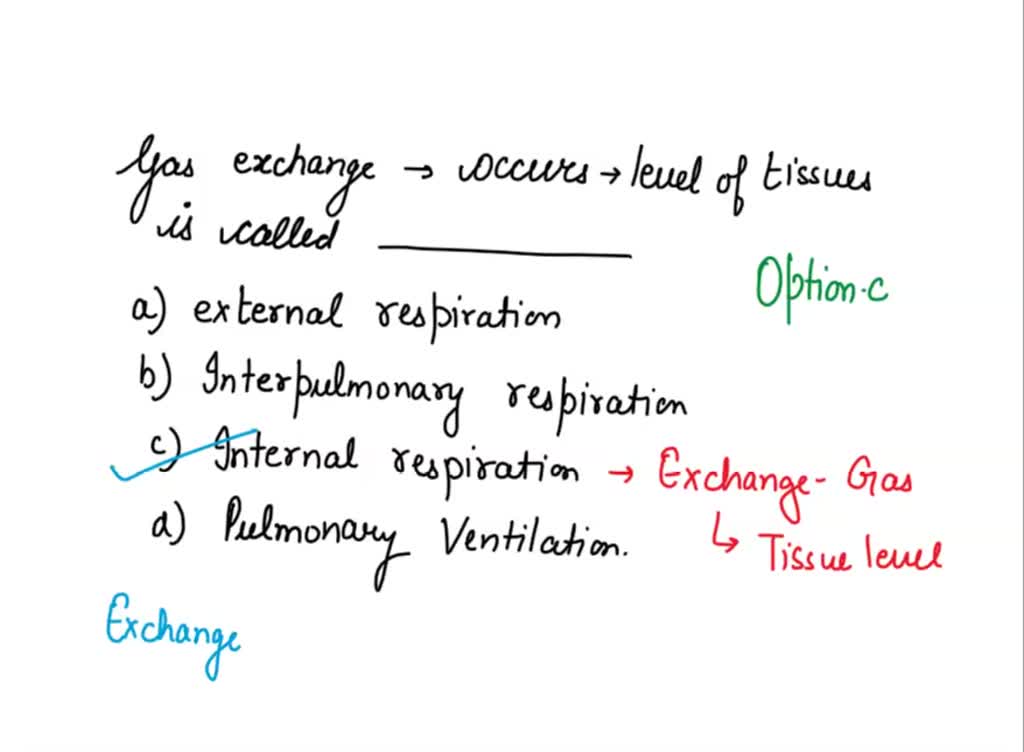 Gas exchange → occurs → level of tissues
is called ________
Option.c
a) external respiration
b) Interpulmonary respiration
c) Internal respiration → Exchange - Gas
↳ Tissue level
d) Pulmonary Ventilation.
Exchange